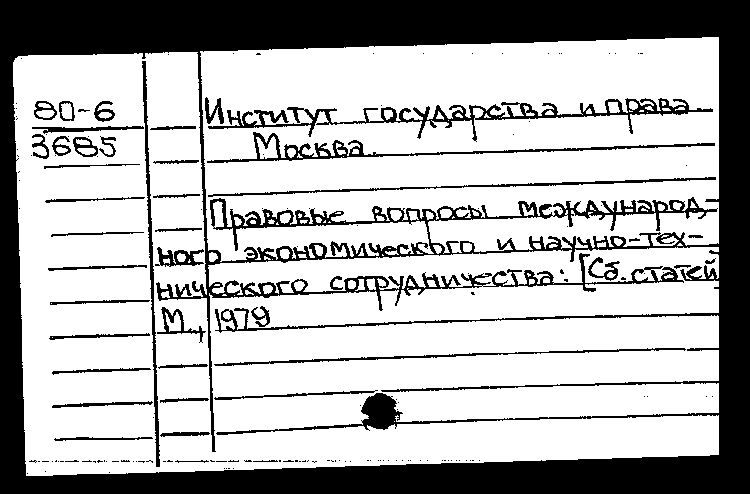 80-6
3685
Институт государства и права.
Москва.
Правовые вопросы международ-
ного экономического и научно-тех-
нического сотрудничества: [Сб. статей
М., 1979